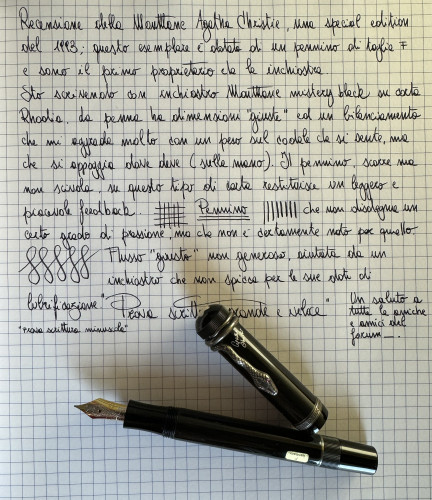 Recensione della Montblanc Agatha Christie, una special edition
del 1993; questo esemplare è dotato di un pennino di taglia F
e sono il primo proprietario che la inchiostra.
Sto scrivendo con inchiostro Montblanc mistery black su carta
Rhodia, la penna ha dimensioni "giuste" ed un bilanciamento
che mi aggrada molto con un peso sul codale che si sente, ma
che si appoggia dove deve (sulla mano). Il pennino, scorre ma
non scivola, su questo tipo di carta restituisce un leggero e
piacevole feedback. Pennino che non disdegna un
certo grado di pressione, ma che non è certamente noto per quello
Flusso "giusto" non generoso, aiutato da un
inchiostro che non spicca per le sue doti di
lubrificazione "Prova grande e veloce"
"Prova scrittura minuscola"
Un saluto a
tutte le amiche
e amici del
forum